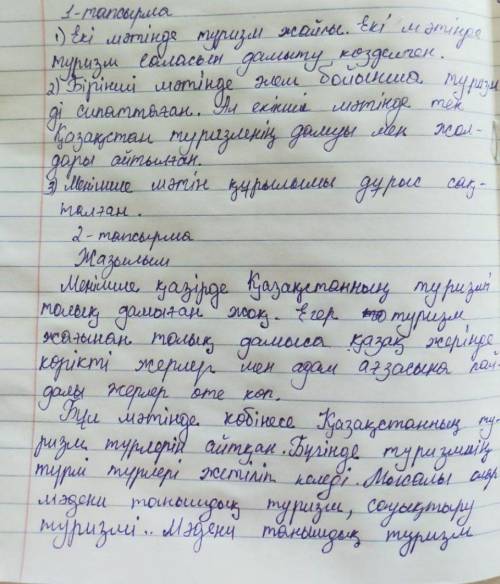 1-тапсырма
1) Екі мәтінде туризм жайлы. Екі мәтінде
туризм саласын дамыту көзделген.
2) Бірінші мәтінде жем бойынша туризм
ді сипаттаған. Ал екінші мәтінде тек
Қазақстан туризмнің дамуы мен жол-
дары айтылған.
3) Менімше мәтін құрылымы дұрыс сақ-
талған.
2-тапсырма
Жазылым
Менімше қазірде Қазақстанның туризмі
толық дамыған жоқ. Егер туризм
жағынан толық дамыса қазақ жерінде
көрікті жерлер мен адам ағзасына пай-
далы жерлер өте көп.
Бұл мәтінде көбінесе Қазақстанның ту-
ризм түрлерін айтқан. Бүгінде туризмнің
түрлі түрлері жетіліп келеді. Мысалы
мәдени танымдық туризм, сауықтыру
туризмі.. Мәдени танымдық туризм